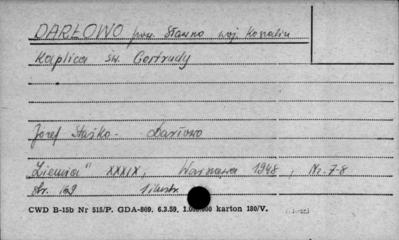 DARŁOWO pow. Sławno woj. Koszalin
Kaplica św. Gertrudy
Józef Staśko - Darłowo
"Ziemia" XXXIX, Warszawa 1948, Nr. 7-8
str. 169 1 ilustr.
CWD B-15b Nr 515/P. GDA-809, 6.3.59, 1.000.000 karton 180/V.